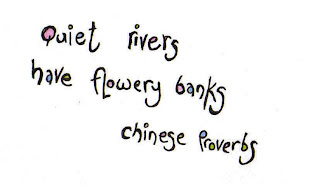 Quiet rivers
have flowery banks
chinese Proverbs